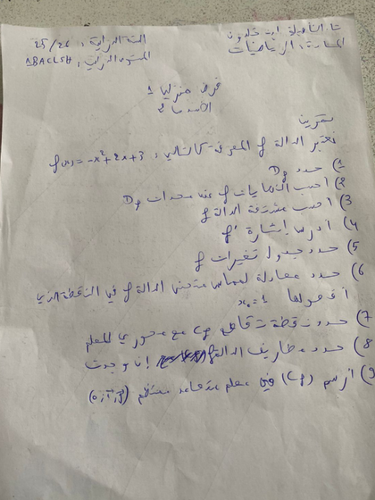 ثا. التأهيلية ابن خلدون
السنة الدراسية: 25/26
المادة: الرياضيات
المستوى الدراسي: 1BACLSH
فرض منزلي 1
الأسدس 2
تمرين
نعتبر الدالة f المعرفة كالتالي: f(x) = -x²+2x+3
1) حدد Df
2) احسب النهايات f عند محدات Df
3) احسب مشتقة الدالة f
4) ادرس إشارة f'
5) حدد جدول تغيرات f
6) حدد معادلة لمماس منحنى الدالة f في النقطة الذي
أفصولها x₀=1
7) حدد نقطة تقاطع Cf مع محوري المعلم
8) حدد مطاريف الدالة f إن وجدت
9) ارسم (Cf) في معلم متعامد ممنظم (o,i,j)